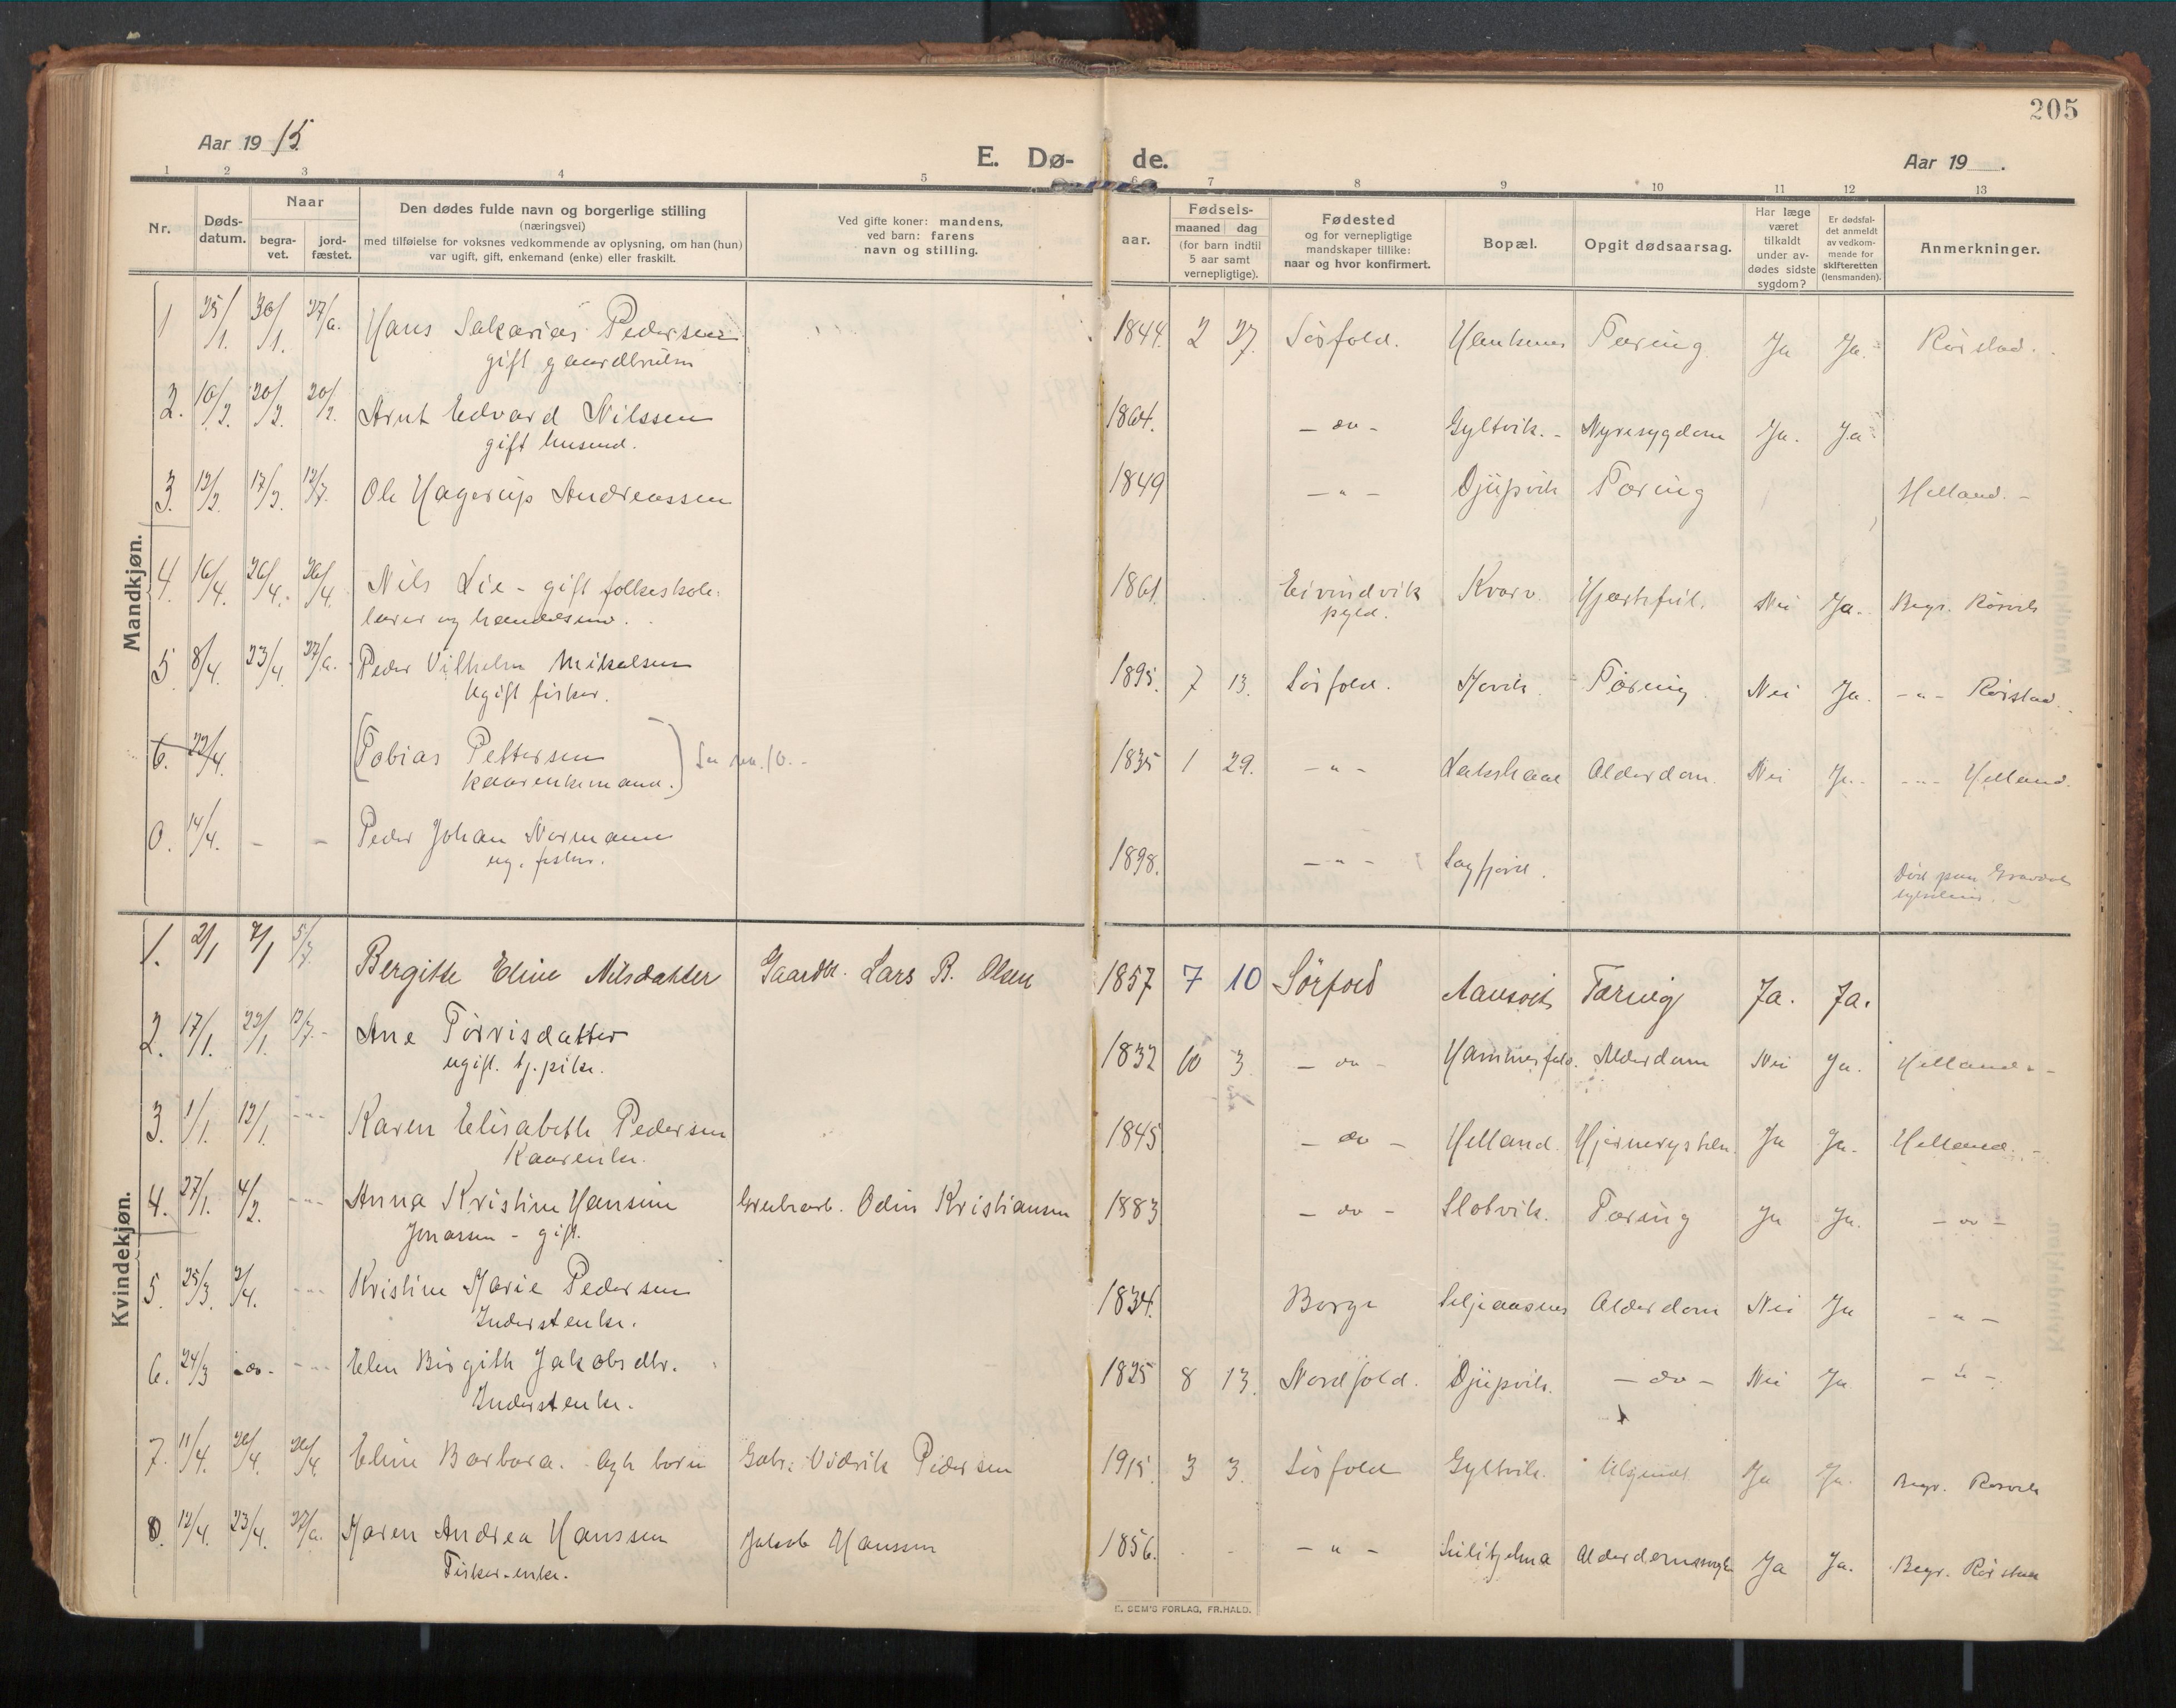 205
Aar 19 15.
E. Dø- de.
Aar 19 .
1 2 3 4 5 6 7 8 9 10 11 12 13
Nr.
Døds-
datum.
Naar
begra-
vet.
jord-
fæstet.
Den dødes fulde navn og borgerlige stilling
(næringsvei)
med tilføielse for voksnes vedkommende av oplysning, om han (hun)
var ugift, gift, enkemand (enke) eller fraskilt.
Ved gifte koner: mandens,
ved barn: farens
navn og stilling.
aar.
Fødsels-
maaned dag
(for barn indtil
5 aar samt
vernepligtige).
Fødested
og for vernepligtige
mandskaper tillike:
naar og hvor konfirmert.
Bopæl.
Opgit dødsaarsag.
Har læge
været
tilkaldt
under av-
dødes sidste
sygdom?
Er dødsfal-
det anmeldt
av vedkom-
mende for
skifteretten
(lensmanden).
Anmerkninger.
Mandkjøn.
1 25/1. 30/1. 27/6. Hans Sakarias Pedersen 1844. 2 27. Sørfold. Tæring Ja Ja. Rørstad.
gift gaardbruker
2. 10/2. 20/2. 20/2. Arnt Edvard Nilssen 1864. - do - Gyltvik. - Nyresygdom Ja. Ja
gift husmd.
3. 12/2. 17/2. 12/7. Ole Hagerup Andreassen 1849 - " - Djupvik Tæring Helland. -
4. 16/4. 26/4. 26/4. Nils Lie - gift folkeskole- 1861. Eivindvik Kvarv. Hjertefeil. Nei Ja. Begr. Rørvik
lærer og handelsmd. pgld.
5. 8/4. 23/4. 27/6. Peder Vilhelm Mikalsen 1895. 7 13. Sørfold. Hovik. Tæring Nei Ja. - " - Rørstad.
Ugift fisker.
6. 22/4. (Tobias Pettersen 1835 1 29. - " - Lakshaal Alderdom. Nei Ja. - " - Helland.
kaarenkemand.) Se nr. 10. -
0. 14/4. - - Peder Johan Normann 1898. - " - Sagfjord.
ug. fisker. Død paa Gravdal
sykehus. -
Kvindekjøn.
1. 2/1 7/1 5/7. Bergitte Eline Nilsdatter Gaardbr. Lars B. Olsen 1857 7 10 Sørfold Tæring Ja. Ja.
2. 17/1. 22/1. 12/7. - Ane Tørrisdatter 1832 10 3. - do - Hammerfald. Alderdom Nei Ja. Helland. -
ugift. tj. pike.
3. 1/1. 12/1. - " - Karen Elisabeth Pedersen 1845 - do - Helland. Hjernerystelse. Ja Ja. Helland. -
Kaarenke.
4. 27/1. 4/2. - " - Anna Kristine Hansine Grubearb. Odin Kristiansen 1883 - do - Slotvik. Tæring Ja Ja. - do -
Jonassen - gift.
5. 25/3. 2/4. - " - Kristine Marie Pedersen 1834. Borge Seljeaasnes Alderdom Nei Ja - " -
Inderstenke.
6. 24/3 - do - - " - Elen Birgith Jakobsdtr. 1825 8 13. Nordfold. Djupvik. - do - Nei Ja - " -
Inderstenke.
7. 11/4. 26/4. 26/4. Eline Barbara. Ægte barn Gabr. Vidrik Pedersen 1915. 3 3. Sørfold Gyltvik. Ukjendt. Ja Ja. Begr. Rørvik
8. 12/4. 23/4. 27/6. Maren Andrea Hanssen Jakob Hanssen 1856. - - - " - Sulitjelma Ja Ja. Begr. Rørstad
Fisker-enke.
E. SEM'S FORLAG, FR.HALD.